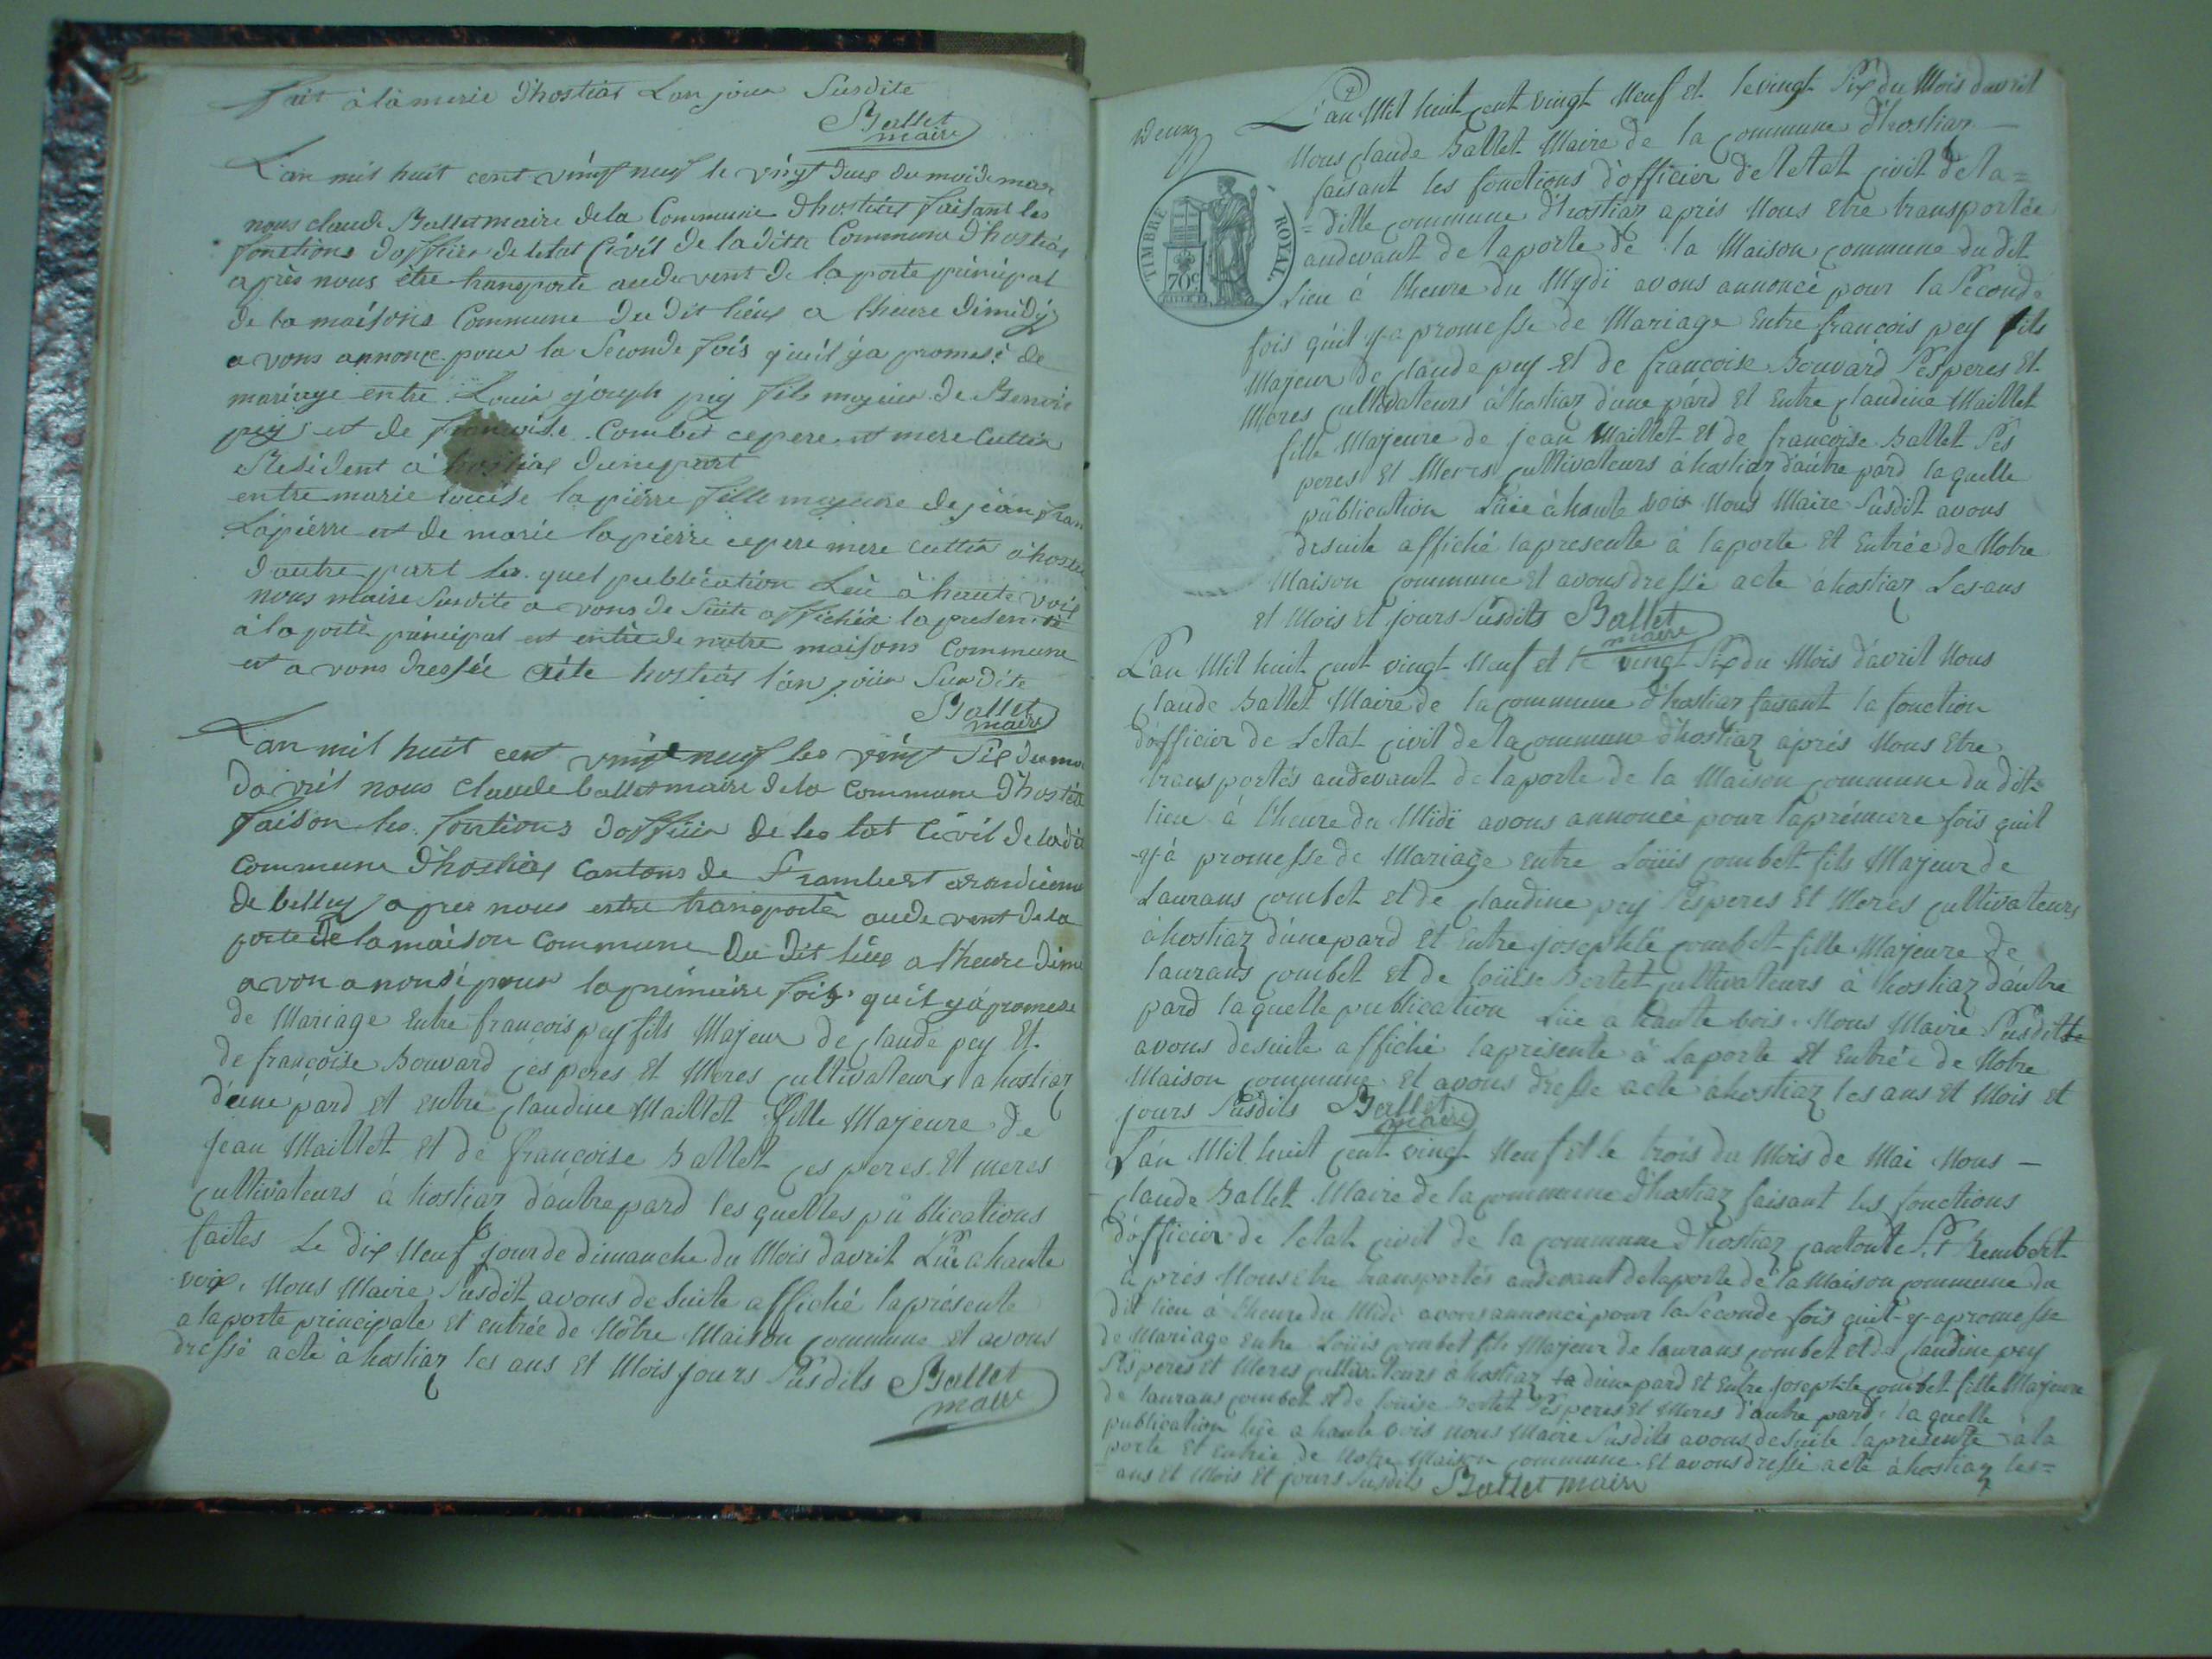 fait à la merie d'hostias L'an jour Susdite
Ballet
maire
L'an mil huit cent vingt neuf le vingt deus du mois de mar
nous claude Ballet maire de la Commune d'hostias faisant les
fonctions d'officier de letat Civil de la ditte Commune d'hostias
après nous être transporté au devent de la porte principal
de la maisons Commune du dit lieux a l'heure dimidy
avons annonce pour la Seconde fois qu'il y a promese de
mariage entre Louis joseph pey fils majeur de Benoit
pey et de francoise Combet ce pere et mere Cultiv
Resident a hostias d'une part
entre marie louise lapierre fille majeure de jean fran
Lapierre et de marie lapierre ce pere mere cultiv à hostia
d'autre part la quel publication Lue à haute voix
nous maire Susdite avons de Suite affichéz la presente
à la porte principal est entrée de notre maisons Commune
et avons dressée acte hostias l'an jour Susdite
Ballet
maire
L'an mil huit cent vingt neuf les vingt Six du mo
davril nous Claude ballet maire dela Commune d'hostia
faison les fontions d'officier de les tat Civil de ladi
Commune d'hostias Cantons de St rambert arondiceme
de belley apres nous estre transporté au devent de la
porte de la maison Commune du dit lieux a l'heure dimi
avon anoncé pour la prémiaire fois qu'il y a promese
de Mariage Entre françois pey fils Majeur de Claude pey Et
de françoise Bouvard ces peres Et Meres cultivateurs a hostiaz
d'une pard Et Entre Claudine Maillet fille Majeure de
Jean Maillet Et de françoise Ballet ces peres Et meres
cultivateurs à hostiaz d'autre pard les quelles publications
faites Le dix Neuf jour de dimanche du Mois davril Lüe a haute
voix, Nous Maire Susdit avons de Suite affiché la présente
a la porte principale Et entrée de Nôtre Maison commune Et avons
dressé acte à hostiaz les ans Et Mois jours Susdits Ballet
maire
Deux
TIMBRE ROYAL
70c
L'an Mil huit cent vingt Neuf Et le vingt Six du Mois davril
Nous Claude Ballet Maire de la Commune d'hostiaz
faisant les fonctions d'officier de letat civil de la=
=ditte commune d'hostiaz après Nous Etre transportée
audevant de la porte de la Maison commune du dit
Lieu à lheure du Mydi avons annoncé pour la Seconde
fois qu'il y a promesse de Mariage Entre françois pey fils
Majeur de Claude pey Et de françoise Bouvard Ses peres Et
Meres cultivateurs à hostiaz d'une pard Et Entre Claudine Maillet
fille Majeure de jean Maillet Et de françoise Ballet Ses
peres Et Meres cultivateurs à hostiaz d'autre pard la quelle
publication Lüe à haute voix Nous Maire Susdit avons
desuite affiché la presente à la porte Et Entrée de Notre
Maison commune Et avons dressé acte à hostiaz Les ans
et Mois Et jours Susdits Ballet
maire
L'an Mil huit cent vingt Neuf et le vingt Six du Mois d'avril Nous
Claude Ballet Maire de la commune d'hostiaz faisant la fonction
d'officier de Letat civil de la commune d'hostiaz après Nous Etre
transportés audevant de la porte de la Maison commune du dit=
lieu à l'heure du Midi avons annoncé pour la prémiere fois quil
y-à promesse de Mariage entre Loüis combet fils Majeur de
Laurans combet et de Claudine pey Ses peres Et Meres cultivateurs
à hostiaz d'une pard Et Entre josephte combet fille Majeure de
laurans combet Et de Loüise Bertet cultivateurs à hostiaz d'autre
pard la quelle publication Lüe a haute vois. Nous Maire Susdit
avons desuite affiché la présente à la porte Et Entrée de Notre
Maison commune Et avons dressé acte à hostiaz les ans Et Mois Et
jours Susdits Ballet
maire
L'an Mil huit cent vingt Neuf Et le trois du Mois de Mai Nous
Claude Ballet Maire de la commune d'hostiaz faisant les fonctions
d'officier de letat civil de la commune d'hostiaz canton de St Rembert
après Nous etre transportés audevant de la porte de la Maison commune du
dit lieu à l'heure du Midi avons annoncé pour la Seconde fois quil-y-a promesse
de Mariage Entre Loüis combet fils Majeur de laurans combet et de Claudine pey
Ses peres et Meres cultivateurs à hostiaz d'une pard Et Entre Josephte combet fille Majeure
de laurans combet Et de louise Bertet Ses peres Et Meres d'autre pard, la quelle
publication lüe a haute vois nous Maire Susdits avons desuite la presente à la
porte Et Entrée de Notre Maison commune Et avons dressé acte à hostiaz les=
ans et Mois Et jours Susdits Ballet maire